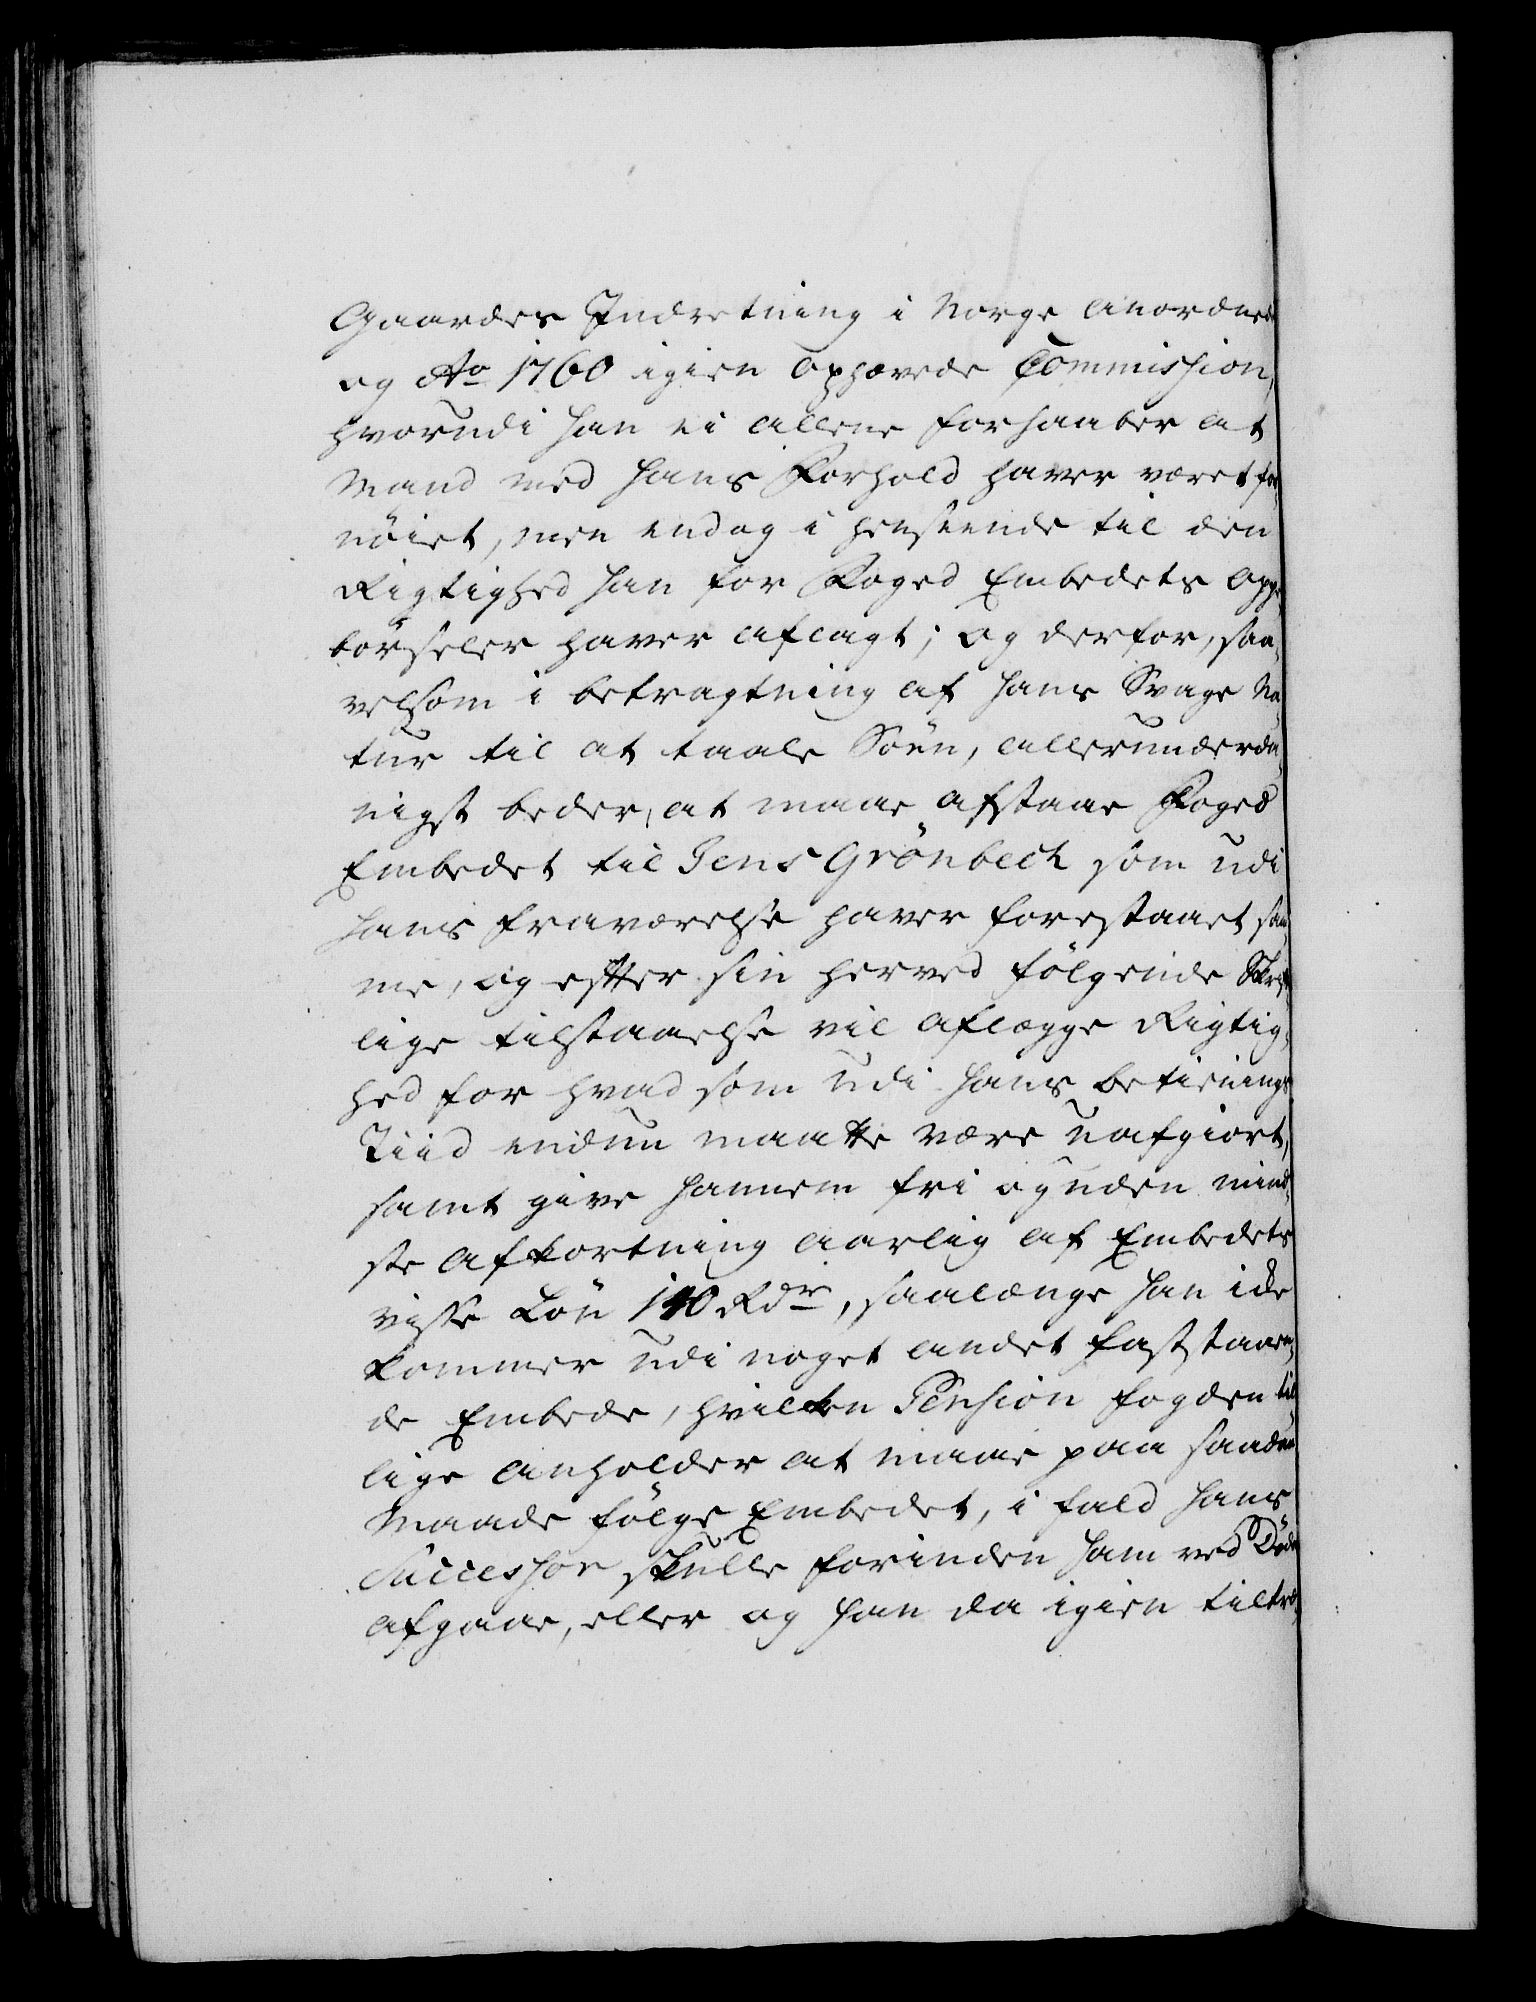 Gaardes Indretning i Norge anordnede
og Ao 1760 igien ophævede Commission,
hvorudi han ei allene forhaaber at
Mand med hans Forhold haver været for¬
nöiet, men endog i henseende til den
Rigtighed han for Foged Embedets Oppe¬
börseler haver aflagt; og derfor, saa¬
velsom i betragtning af hans Svage Na¬
tur til at taale Söen, allerunderda¬
nigst beder, at maae afstaae Foged
Embedet til Jens Grönbech som udi
hans fraværelse haver forestaaet sam¬
me, og efter sin herved fölgende Skrift¬
lige tilstaaelse vil aflægge Rigtig¬
hed for hvad som udi hans betienings
Tiid endnu maatte være uafgiort,
samt give hannem fri og uden mind¬
ste afkortning aarlig af Embedets
visse Lön 140 Rdr, saalænge han icke
kommer udi noget andet faststaaen¬
de Embede, hvilken Pension fogden til¬
lige anholder at maae paa saadan
Maade fölge Embedet, i fald hans
Successor skulle forinden ham ved Döde
afgaae, eller og han da igien tiltræ¬